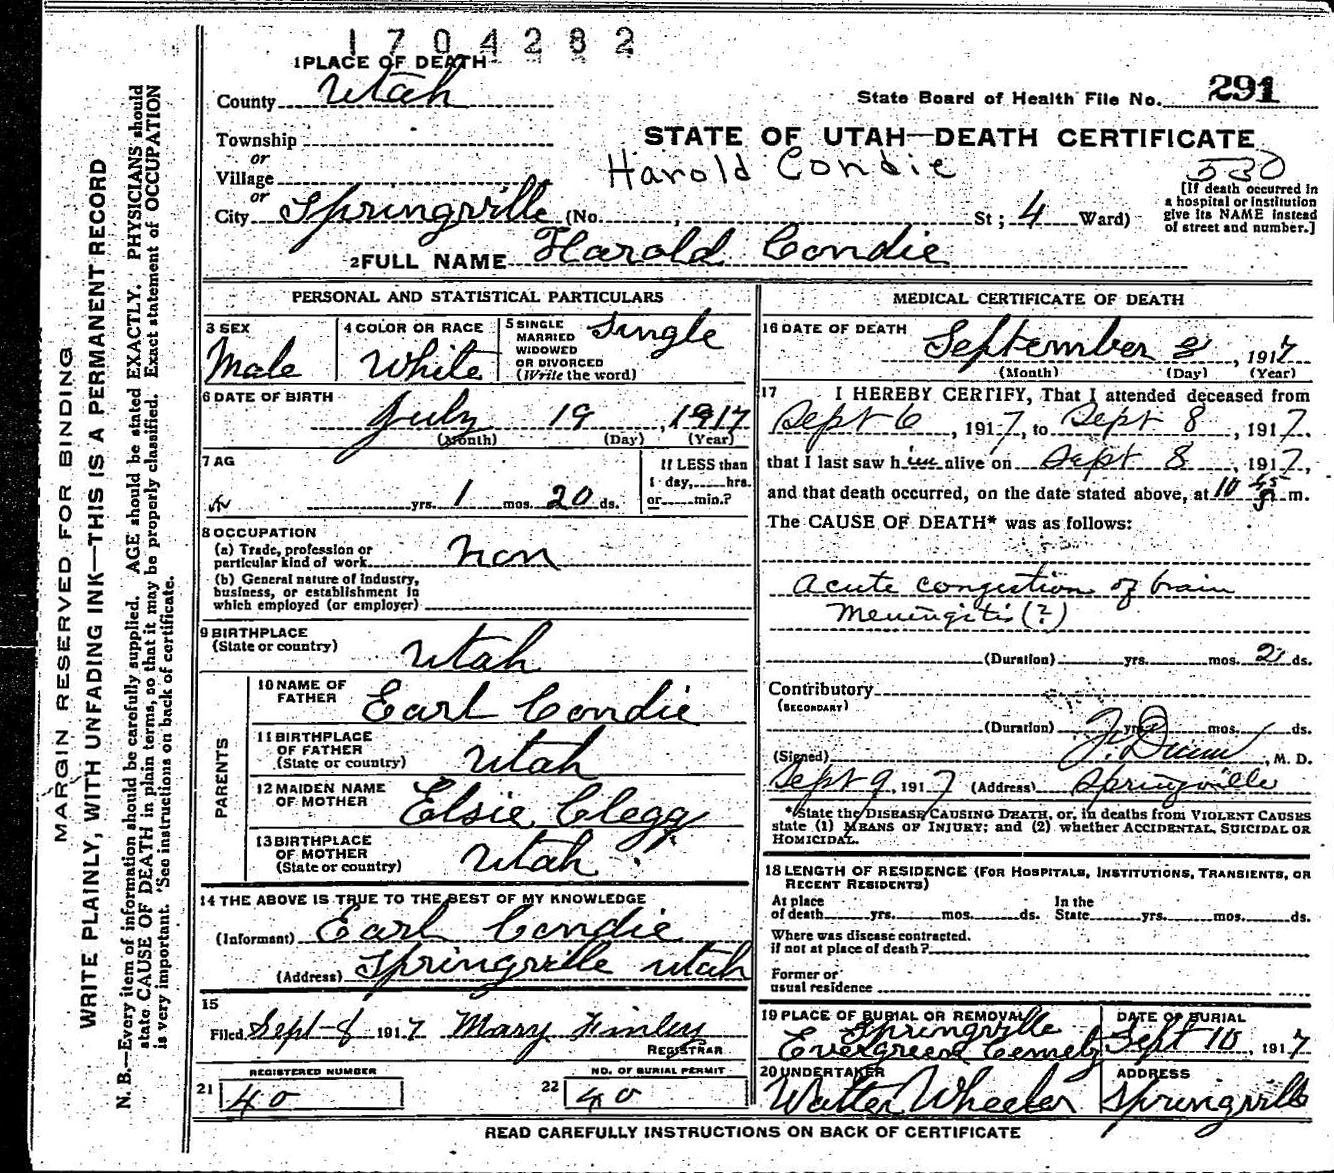 1704282
1 PLACE OF DEATH
County Utah
State Board of Health File No. 291
Township
or
Village
or
STATE OF UTAH—DEATH CERTIFICATE
Harold Condie
530
City Springville (No. , St; 4 Ward)
[If death occurred in
a hospital or institution
give its NAME instead
of street and number.]
2 FULL NAME Harold Condie
PERSONAL AND STATISTICAL PARTICULARS
3 SEX
Male
4 COLOR OR RACE
White
5 SINGLE
MARRIED
WIDOWED
OR DIVORCED
(Write the word)
Single
6 DATE OF BIRTH
July 19, 1917
(Month) (Day) (Year)
7 AG
yrs. 1 mos. 20 ds.
If LESS than
1 day, hrs.
or min.?
8 OCCUPATION
(a) Trade, profession or
particular kind of work non
(b) General nature of industry,
business, or establishment in
which employed (or employer)
9 BIRTHPLACE
(State or country) Utah
PARENTS
10 NAME OF
FATHER Earl Condie
11 BIRTHPLACE
OF FATHER
(State or country) Utah
12 MAIDEN NAME
OF MOTHER Elsie Clegg
13 BIRTHPLACE
OF MOTHER
(State or country) Utah
14 THE ABOVE IS TRUE TO THE BEST OF MY KNOWLEDGE
(Informant) Earl Condie
(Address) Springville Utah
15
Filed Sept-8 1917 Mary Finley
REGISTRAR
REGISTERED NUMBER
21 40
NO. OF BURIAL PERMIT
22 40
MEDICAL CERTIFICATE OF DEATH
16 DATE OF DEATH
September 8, 1917
(Month) (Day) (Year)
17 I HEREBY CERTIFY, That I attended deceased from
Sept 6, 1917, to Sept 8, 1917.
that I last saw him alive on Sept 8, 1917,
and that death occurred, on the date stated above, at 10 m.
The CAUSE OF DEATH* was as follows:
Acute congestion of brain
Meningitis (?)
(Duration) yrs. mos. 2 ds.
Contributory
(SECONDARY)
(Duration) yrs. mos. ds.
(Signed) Dunn, M. D.
Sept 9, 1917 (Address) Springville
*State the DISEASE CAUSING DEATH, or, in deaths from VIOLENT CAUSES
state (1) MEANS OF INJURY; and (2) whether ACCIDENTAL, SUICIDAL OR
HOMICIDAL.
18 LENGTH OF RESIDENCE (FOR HOSPITALS, INSTITUTIONS, TRANSIENTS, OR
RECENT RESIDENTS)
At place
of death yrs. mos. ds.
In the
State yrs. mos. ds.
Where was disease contracted,
if not at place of death?
Former or
usual residence
19 PLACE OF BURIAL OR REMOVAL
Springville
Evergreen
DATE OF BURIAL
Sept 10, 1917
20 UNDERTAKER
Walter Wheeler
ADDRESS
Springville
READ CAREFULLY INSTRUCTIONS ON BACK OF CERTIFICATE
MARGIN RESERVED FOR BINDING
WRITE PLAINLY, WITH UNFADING INK—THIS IS A PERMANENT RECORD
N. B.—Every item of information should be carefully supplied. AGE should be stated EXACTLY. PHYSICIANS should
state CAUSE OF DEATH in plain terms, so that it may be properly classified. Exact statement of OCCUPATION
is very important. See instructions on back of certificate.